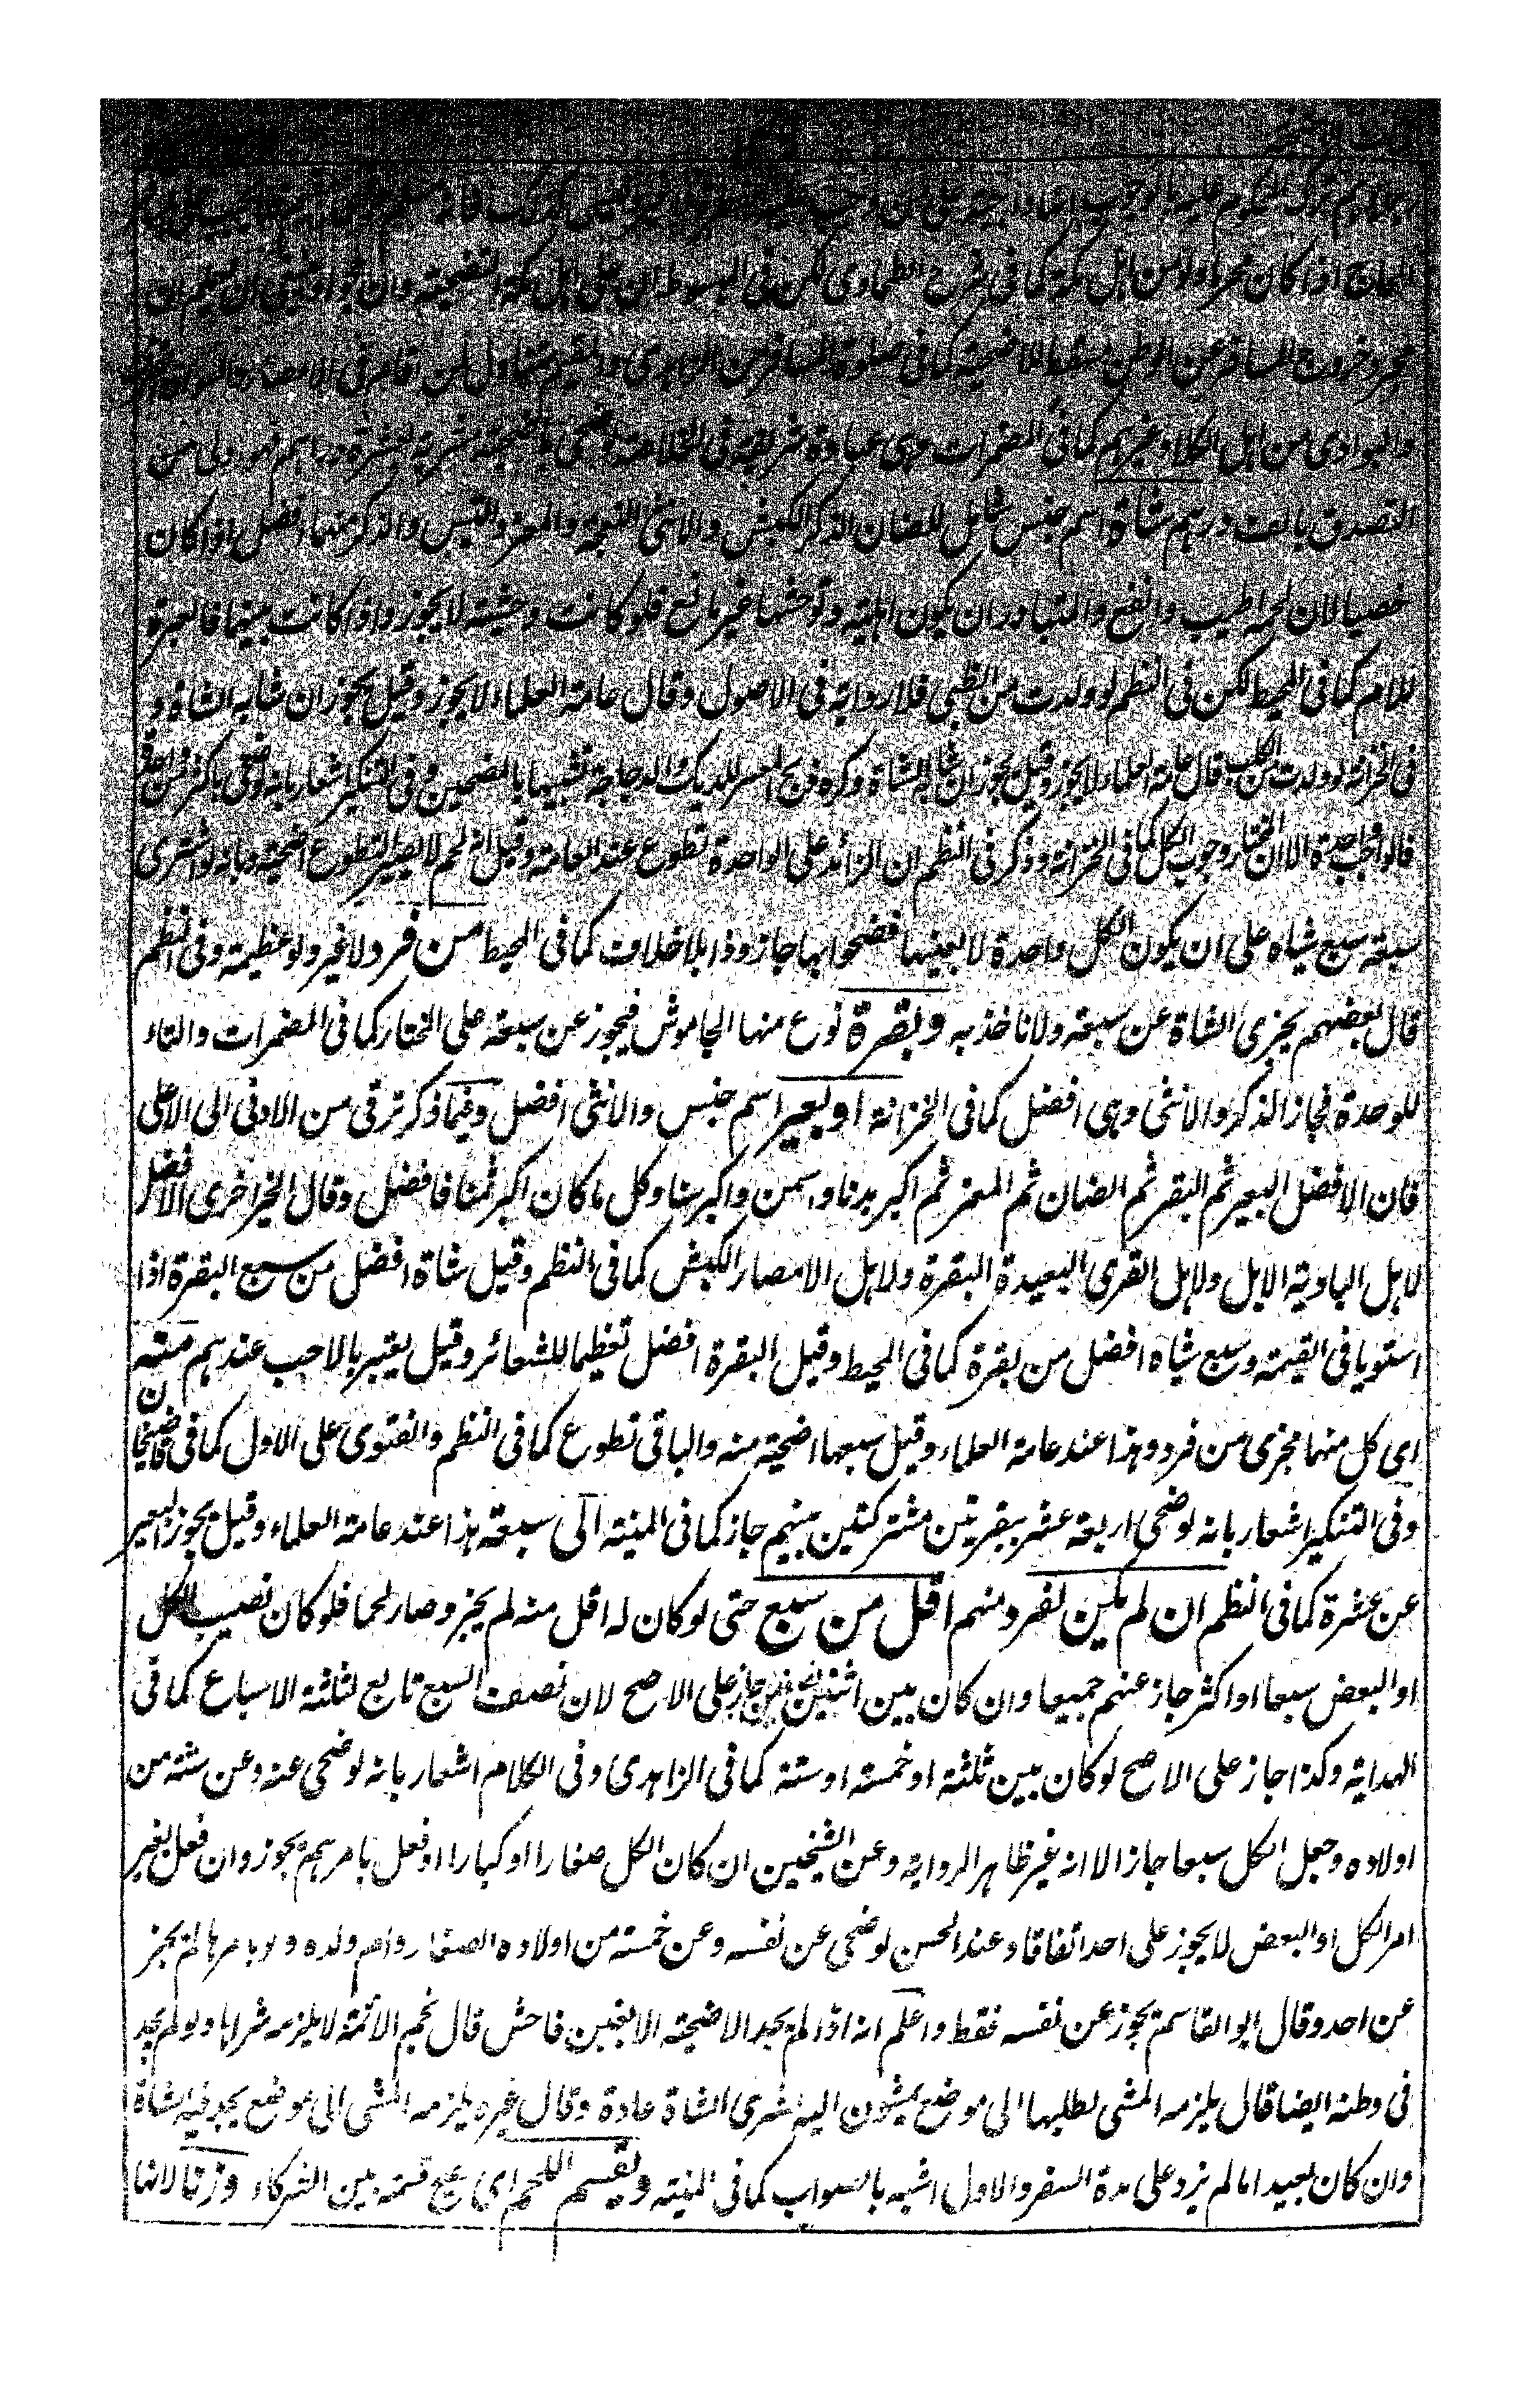 الحاج اذا كان محرما ولو من اهل مكة كما فى شرح الطحاوى لكن فى المبسوط ان على اهل مكة التضحية وان
خروج المسافر عن الوطن كما فى صلوة المسافر من الزاهدى
والبوادى من اهل الكلا وغيرهم كما فى المضمرات وهى عبادة فى الخلاصة
التصدق بالف درهم شاة اسم جنس شامل للضان الذكر الكبش والانثى النعجة والمعز والتيس والذكر منهما افضل اذا كان
خصيا لان لحمه اطيب وانفع والمتبادر ان يكون اهلية وتوحشها غير مانع فلو كانت وحشية لا يجوز واذا كانت بينهما فالعبرة
للام كما فى المحيط لكن فى النظم لو ولدت من الظبى فلا رواية فى الاصول وقال عامة العلماء لا يجوز وقيل يجوز ان شابه الشاة و
فى الخزانة لو ولدت من الكلب قال عامة العلماء لا يجوز وقيل يجوز ان شابه الشاة وكره ذبح المعسر للديك والدجاجة تشبيها بالمضحين وفى التنكير اشعار بانه لو ضحى باكثر من واحدة
فالواجب واحدة الا ان المختار وجوب الكل كما فى الخزانة وذكر فى النظم ان الزائد على الواحدة تطوع عند العامة وقيل لحم لا يصير التطوع اضحية وبانه لو اشترى
سبعة سبع شياه على ان يكون الكل واحدة لا بعينها فضحوا بها جاز وذا بلا خلاف كما فى المحيط من فرد لا غير ولو عظيمة وفى النظم
قال بعضهم يجزى الشاة عن سبعة ولا ناخذ به وبقرة نوع منها الجاموش فيجوز عن سبعة على المختار كما فى المضمرات والتاء
للوحدة فجاز الذكر والانثى وهى افضل كما فى الخزانة او بعير اسم جنس والانثى افضل وفيما ذكر ترقى من الادنى الى الاعلى
فان الافضل البعير ثم البقر ثم الضان ثم المعز ثم اكبر بدنا واسمن واكبر سنا وكل ما كان اكبر ثمنا فافضل وقال الخيزاخزى الافضل
لاهل البادية الابل ولاهل القرى البعيدة البقرة ولاهل الامصار الكبش كما فى النظم وقيل شاة افضل من سبع البقرة اذا
استويا فى القيمة وسبع شياه افضل من بقرة كما فى المحيط وقيل البقرة افضل تعظيما للشعائر وقيل يعتبر بالاحب عندهم منه
اى كل منهما مجزى من فرد وهذا عند عامة العلماء وقيل سبعها اضحية منه والباقى تطوع كما فى النظم والفتوى على الاول كما فى قاضيخان
وفى التنكير اشعار بانه لو ضحى اربعة عشر ببقرتين مشتركتين بينهم جاز كما فى المنية الى سبعة هذا عند عامة العلماء وقيل يجوز البعير
عن عشرة كما فى النظم ان لم يكن لفرد منهم اقل من سبع حتى لو كان له اقل منه لم يجز وصار لحما فلو كان نصيب الكل
او البعض سبعا او اكثر جاز عنهم جميعا وان كان بين اثنين نصفين جاز على الاصح لان نصف السبع تابع لثلثة الاسباع كما فى
الهداية وكذا جاز على الاصح لو كان بين ثلثة او خمسة او ستة كما فى الزاهدى وفى الكلام اشعار بانه لو ضحى عنه وعن ستة من
اولاده وجعل الكل سبعا جاز الا انه غير ظاهر الرواية وعن الشيخين ان كان الكل صغارا او كبارا او فعل بامرهم يجوز وان فعل بغير
امر الكل او البعض لا يجوز على احد اتفاقا وعند الحسن لو ضحى عن نفسه وعن خمسة من اولاده الصغار وام ولده ولو بامرها لم يجز
عن احد وقال ابو القاسم يجوز عن نفسه فقط واعلم انه اذا لم يجد الاضحية الا بغبن فاحش قال نجم الائمة لا يلزمه شراها ولو لم يجد
فى وطنه ايضا قال يلزمه المشى لطلبها الى موضع يمشون اليه لشرى الشاة عادة وقال غيره يلزمه المشى الى موضع يجد فيه الشاة
وان كان بعيدا ما لم يزد على مدة السفر والاول اشبه بالصواب كما فى المنية ويقسم اللحم اى يصح قسمته بين الشركاء وزنا لانها